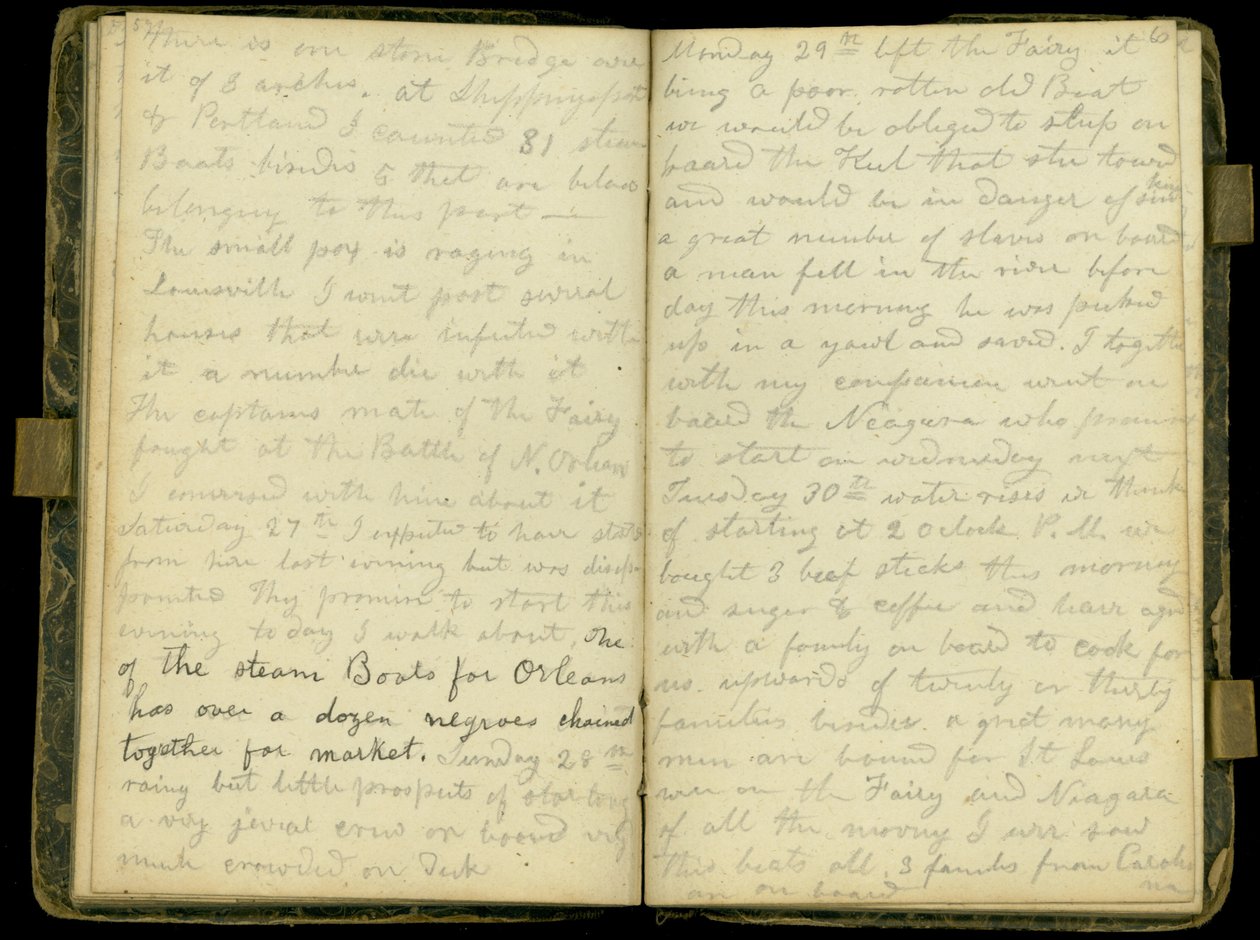 59
There is one stone Bridge over
it of 3 arches. at Shippingsport
& Portland I counted 31 steam
Boats besides 5 that are below
belonging to this port —
The small pox is raging in
Louisville I went past several
houses that were infected with
it a number die with it
The captains mate of the Fairy
fought at the Battle of N. Orleans
I conversed with him about it
Saturday 27th I expected to have started
from here last evening but was disap-
pointed They promise to start this
evening to day I walk about, One
of the steam Boats for Orleans
has over a dozen negroes chained
together for market. Sunday 28th
rainy but little prospects of starting
a very jovial crew on board very
much crowded on Deck
60
Monday 29th left the Fairy it
being a poor rotten old Boat
we would be obliged to sleep on
board the Keel that she towed
and would be in danger of sinking
a great number of slaves on board
a man fell in the river before
day this morning he was picked
up in a yawl and saved. I together
with my companion went on
board the Niagara who promises
to start on wednesday next
Tuesday 30th water rises we think
of starting at 2 Oclock P.M. we
bought 3 beef steaks this morning
and sugar & coffee and have agreed
with a family on board to cook for
us. upwards of twenty or thirty
families besides a great many
men are bound for St Louis
were on the Fairy and Niagara
of all the moving I ever saw
this beats all. 3 families from Carolina
are on board